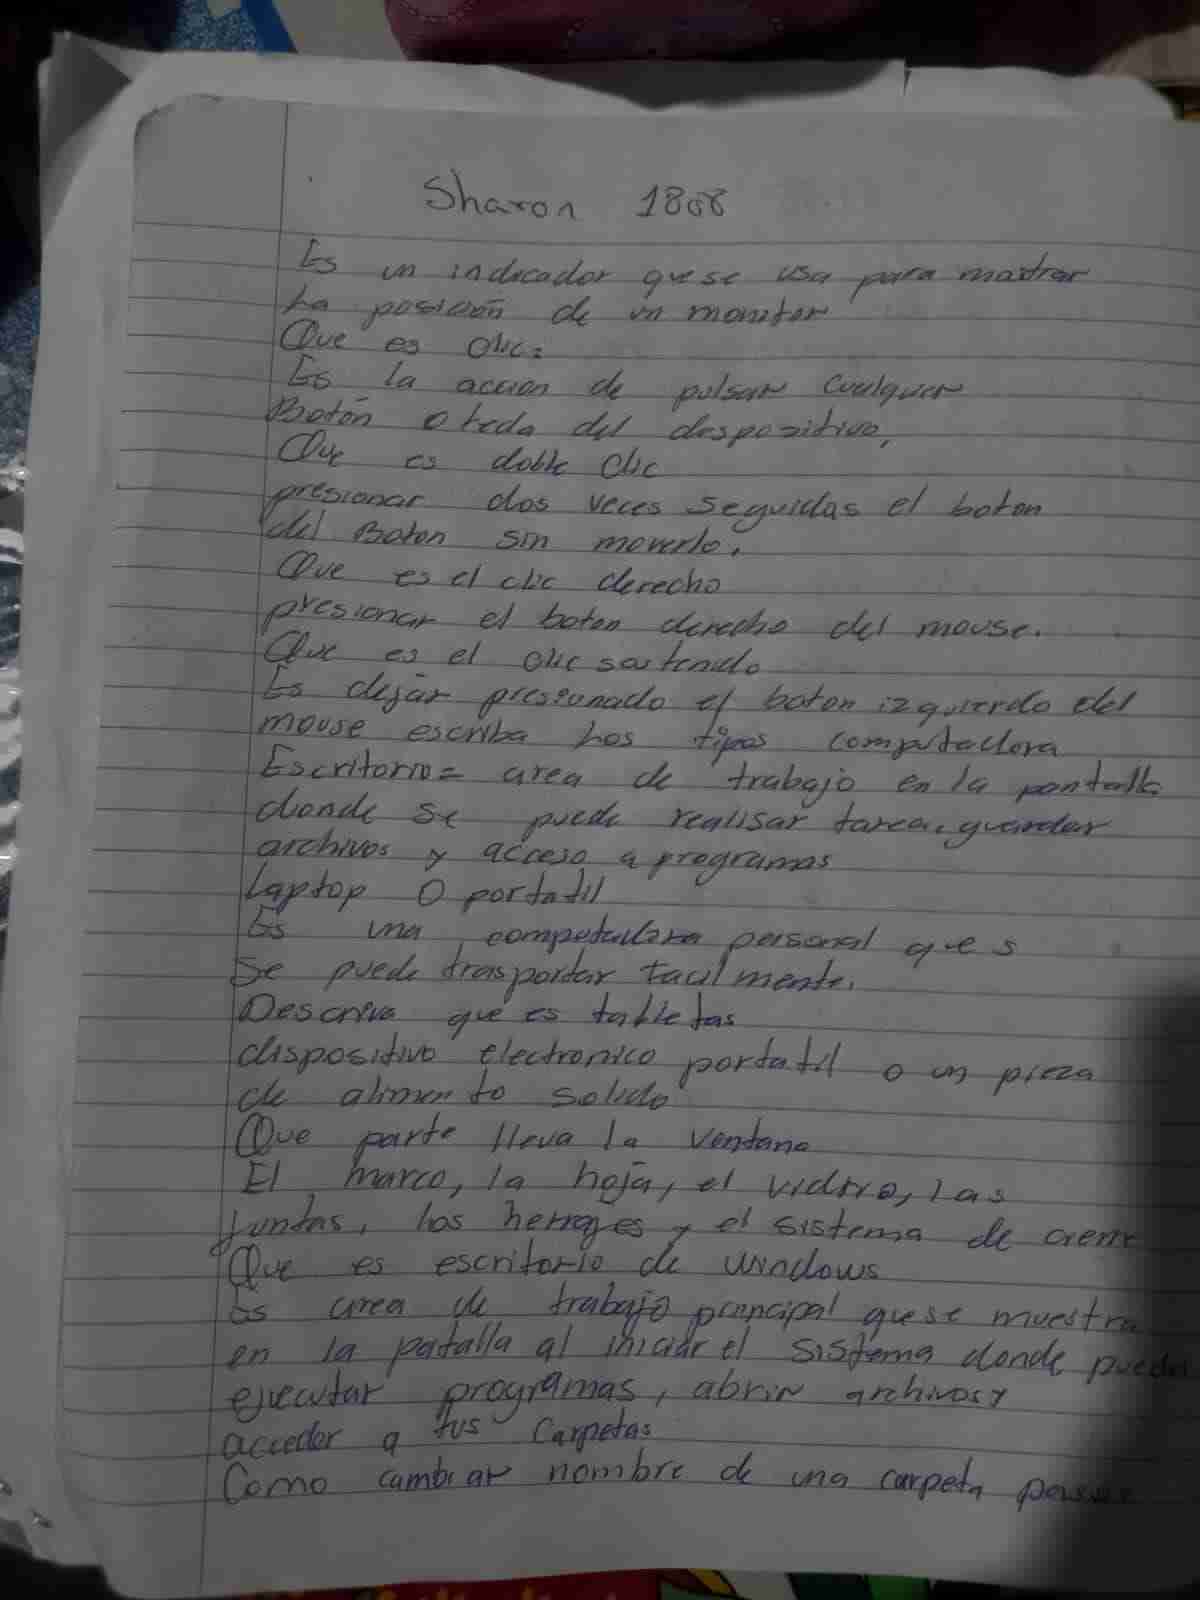 Sharon 1808
Es un indicador que se usa para mostrar
La posición de un monitor
Que es clic:
Es la acción de pulsar cualquier
Botón o tecla del dispozitivo,
Que es doble clic
presionar dos veces seguidas el boton
del Boton sin moverlo.
Que es el clic derecho
presionar el boton derecho del mouse.
Que es el clic sostenido
Es dejar presionado el boton izquierdo del
mouse escriba Los tipos computadora
Escritorio = area de trabajo en la pantalla
donde se puede realisar tarea, guardar
archivos y acceso a programas
Laptop O portatil
Es una computadora personal que s
Se puede trasportar facilmente.
Descriva que es tabletas
dispositivo electronico portatil o un pieza
de alimento solido
Que parte lleva la ventana
El marco, la hoja, el vidrio, las
juntas, los herrajes y el sistema de cierre
Que es escritorio de windows
Es area de trabajo principal que se muestra
en la patalla al iniciar el sistema donde puedes
ejecutar programas, abrir archivos y
acceder a tus carpetas
Como cambiar nombre de una carpeta